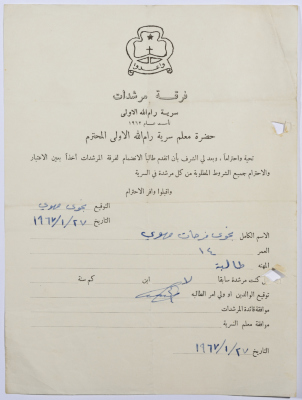 وأعدوا
فرقة مرشدات
سرية رام الله الاولى
تأسست عام ١٩١٢
حضرة معلم سرية رام الله الاولى المحترم
تحية واحتراماً، وبعد لي الشرف بأن اتقدم طالباً الانضمام لفرقة المرشدات آخذاً بعين الاعتبار
والاحترام جميع الشروط المطلوبة من كل مرشدة في السرية
واقبلوا وافر الاحترام
التوقيع
التاريخ ١٩٦٢/١/٢٧
الاسم الكامل فرحات
العمر ١٤
المهنة طالبة
هل كنت مرشدة سابقا لا اين كم سنة
توقيع الوالدين او ولي امر الطالبة
موافقة قائدة المرشدات
موافقة معلم السرية
التاريخ ١٩٦٢/١/٢٧